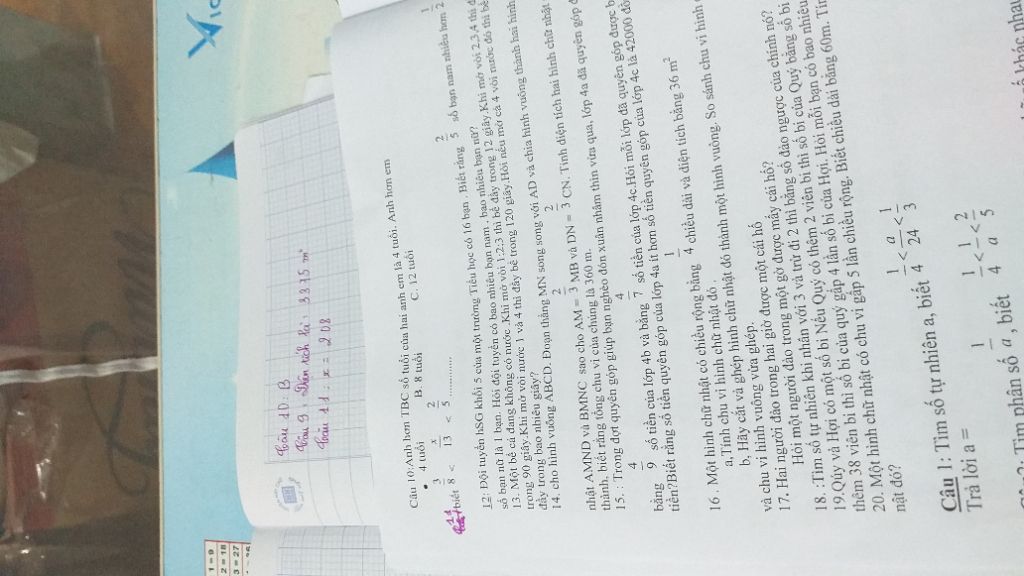 Câu 10: B
Câu 9: Diện tích là: 3375 m²
Câu 11: x = 208
Câu 10:Anh hơn TBC số tuổi của hai anh em là 4 tuổi. Anh hơn em
4 tuổi B. 8 tuổi C. 12 tuổi
biết 3/8 < x/13 < 2/5 ..............
12: Đội tuyển hSG khối 5 của một trường Tiểu học có 16 bạn . Biết rằng 2/5 số bạn nam nhiều hơn 1/2
số bạn nữ là 1 bạn. Hỏi đội tuyển có bao nhiêu bạn nam , bao nhiêu bạn nữ?
13. Một bể cá đang không có nước .Khi mở vòi 1,2,3 thì bể đầy trong 12 giây.Khi mở vòi 2,3,4 thì
trong 90 giây.Khi mở vòi nước 1 và 4 thì đầy bể trong 120 giây.Hỏi nếu mở cả 4 vòi nước đó thì bể
đầy trong bao nhiêu giây?
14. cho hình vuông ABCD. Đoạn thẳng MN song song với AD và chia hình vuông thành hai hình
nhật AMND và BMNC sao cho AM = 2/3 MB và DN = 2/3 CN. Tính diện tích hai hình chữ nhật
thành, biết rằng tổng chu vi của chúng là 360 m.
15. : Trong đợt quyên góp giúp bạn nghèo đón xuân nhâm thìn vừa qua, lớp 4a đã quyên góp
bằng 4/9 số tiền của lớp 4b và bằng 4/7 số tiền của lớp 4c.Hỏi mỗi lớp đã quyên góp được
tiền?Biết rằng số tiền quyên góp của lớp 4a ít hơn số tiền quyên góp của lớp 4c là 42000
16 . Một hình chữ nhật có chiều rộng bằng 1/4 chiều dài và diện tích bằng 36 m²
a,Tính chu vi hình chữ nhật đó.
b, Hãy cắt và ghép hình chữ nhật đó thành một hình vuông. So sánh chu vi hình
và chu vi hình vuông vừa ghép.
17. Hai người đào trong hai giờ được một cái hố
Hỏi một người đào trong một giờ được mấy cái hố?
18. :Tìm số tự nhiên khi nhân với 3 và trừ đi 2 thì bằng số đảo ngược của chính nó?
19.Qúy và Hợi có một số bi Nếu Quý có thêm 2 viên bi thì số bi của Quý bằng số bi
thêm 38 viên bi thì số bi của quý gấp 4 lần số bi của Hợi. Hỏi mỗi bạn có bao nhiêu
20. Một hình chữ nhật có chu vi gấp 5 lần chiều rộng. Biết chiều dài bằng 60m.
nật đó?
Câu 1: Tìm số tự nhiên a, biết 1/4 < a/24 < 1/3
Trả lời a =
Tìm phân số 1/a , biết 1/4 < 1/a < 2/5
1 = 9
2 = 18
3 = 27